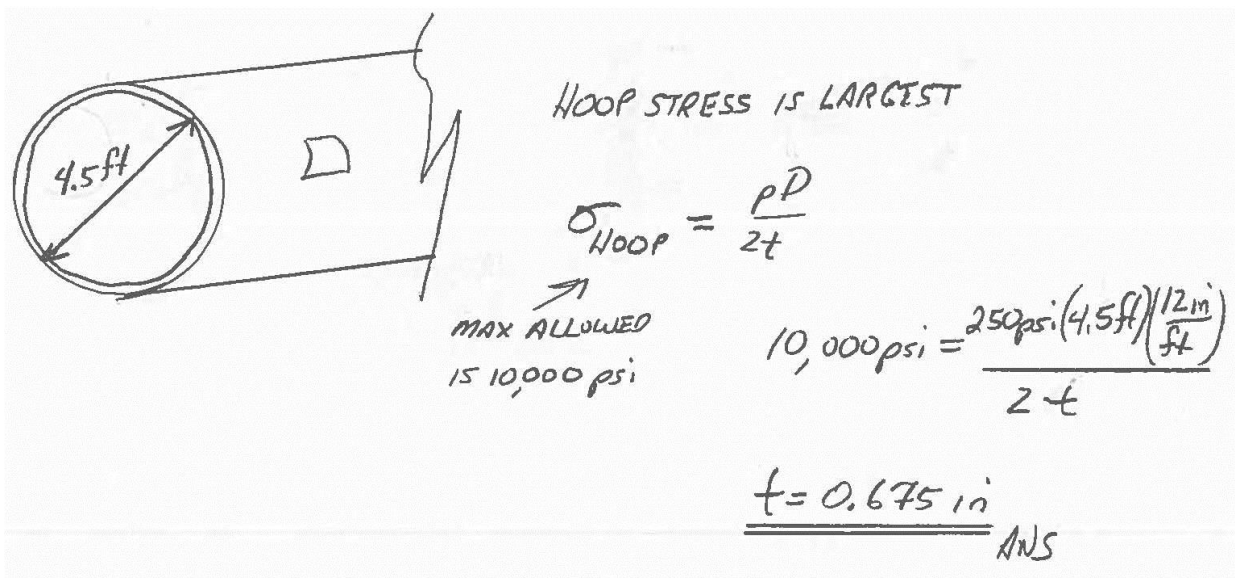 4.5ft
HOOP STRESS IS LARGEST
σHOOP = pD/2t
MAX ALLOWED
IS 10,000 psi
10,000psi = 250psi(4.5ft)(12in/ft)/2t
t = 0.675 in
ANS